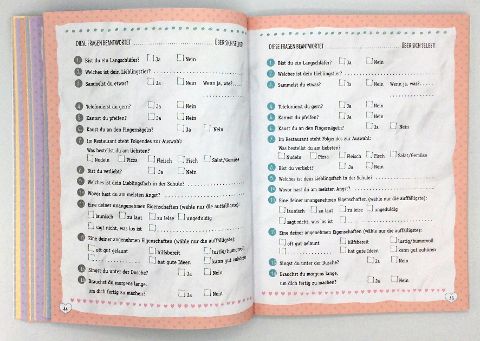 DIESE FRAGEN BEANTWORTET ÜBER SICH SELBST:
1 Bist du ein Langschläfer? Ja Nein
2 Welches ist dein Lieblingstier?
3 Sammelst du etwas? Ja Nein Wenn ja, was?
4 Telefonierst du gern? Ja Nein
5 Kannst du pfeifen? Ja Nein
6 Kaust du an den Fingernägeln? Ja Nein
7 Im Restaurant steht Folgendes zur Auswahl:
Was bestellst du am liebsten?
Nudeln Pizza Fleisch Fisch Salat/Gemüse
8 Bist du verliebt? Ja Nein
9 Welches ist dein Lieblingsfach in der Schule?
10 Wovor hast du am meisten Angst?
11 Eine deiner unangenehmen Eigenschaften (wähle nur die auffälligste):
launisch zu laut zu leise ungeduldig
sagt nicht, was los ist
12 Eine deiner angenehmen Eigenschaften (wähle nur die auffälligste):
oft gut gelaunt hilfsbereit lustig/humorvoll
hat gute Ideen kann gut zuhören
13 Singst du unter der Dusche? Ja Nein
14 Brauchst du morgens lange,
um dich fertig zu machen? Ja Nein
44
DIESE FRAGEN BEANTWORTET ÜBER SICH SELBST:
1 Bist du ein Langschläfer? Ja Nein
2 Welches ist dein Lieblingstier?
3 Sammelst du etwas? Ja Nein Wenn ja, was?
4 Telefonierst du gern? Ja Nein
5 Kannst du pfeifen? Ja Nein
6 Kaust du an den Fingernägeln? Ja Nein
7 Im Restaurant steht Folgendes zur Auswahl:
Was bestellst du am liebsten?
Nudeln Pizza Fleisch Fisch Salat/Gemüse
8 Bist du verliebt? Ja Nein
9 Welches ist dein Lieblingsfach in der Schule?
10 Wovor hast du am meisten Angst?
11 Eine deiner unangenehmen Eigenschaften (wähle nur die auffälligste):
launisch zu laut zu leise ungeduldig
sagt nicht, was los ist
12 Eine deiner angenehmen Eigenschaften (wähle nur die auffälligste):
oft gut gelaunt hilfsbereit lustig/humorvoll
hat gute Ideen kann gut zuhören
13 Singst du unter der Dusche? Ja Nein
14 Brauchst du morgens lange,
um dich fertig zu machen? Ja Nein
45